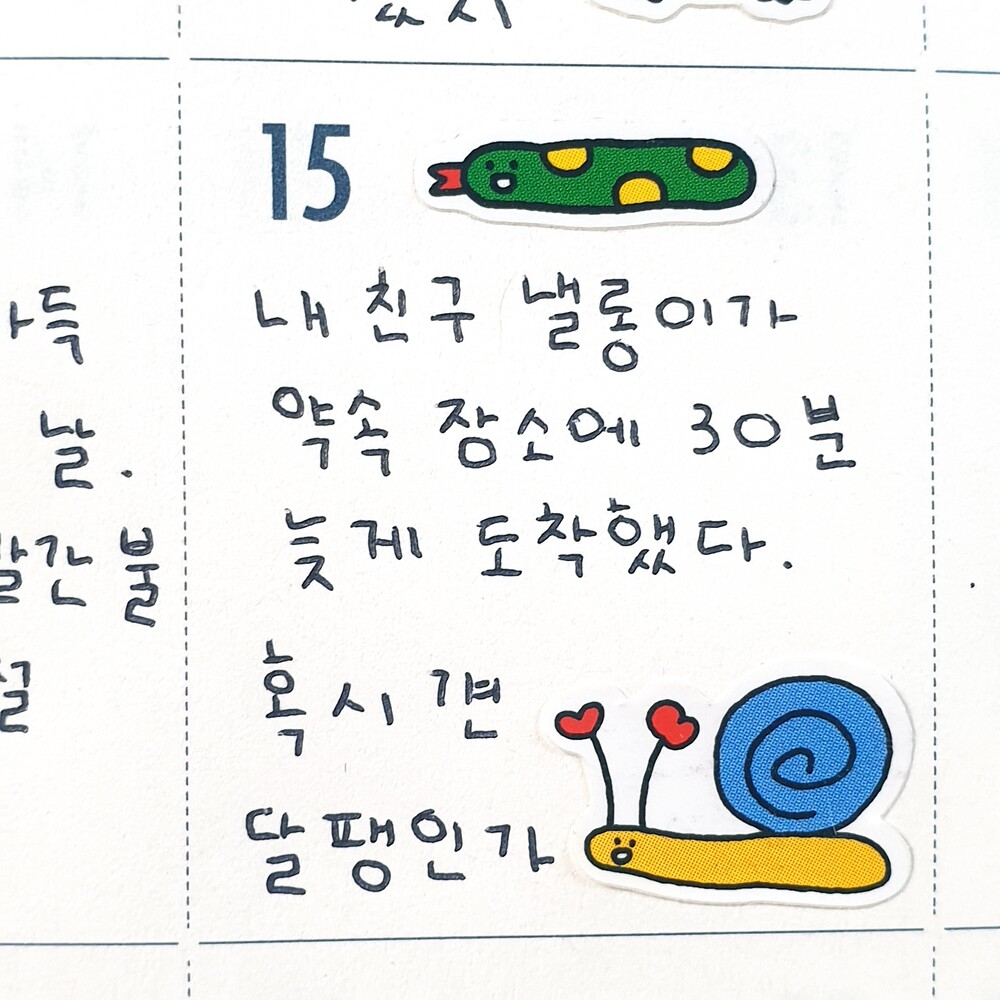 15
내 친구 낼롱이가
약속 장소에 30분
늦게 도착했다.
혹시 걘
달팽인가
득
날.
간 불